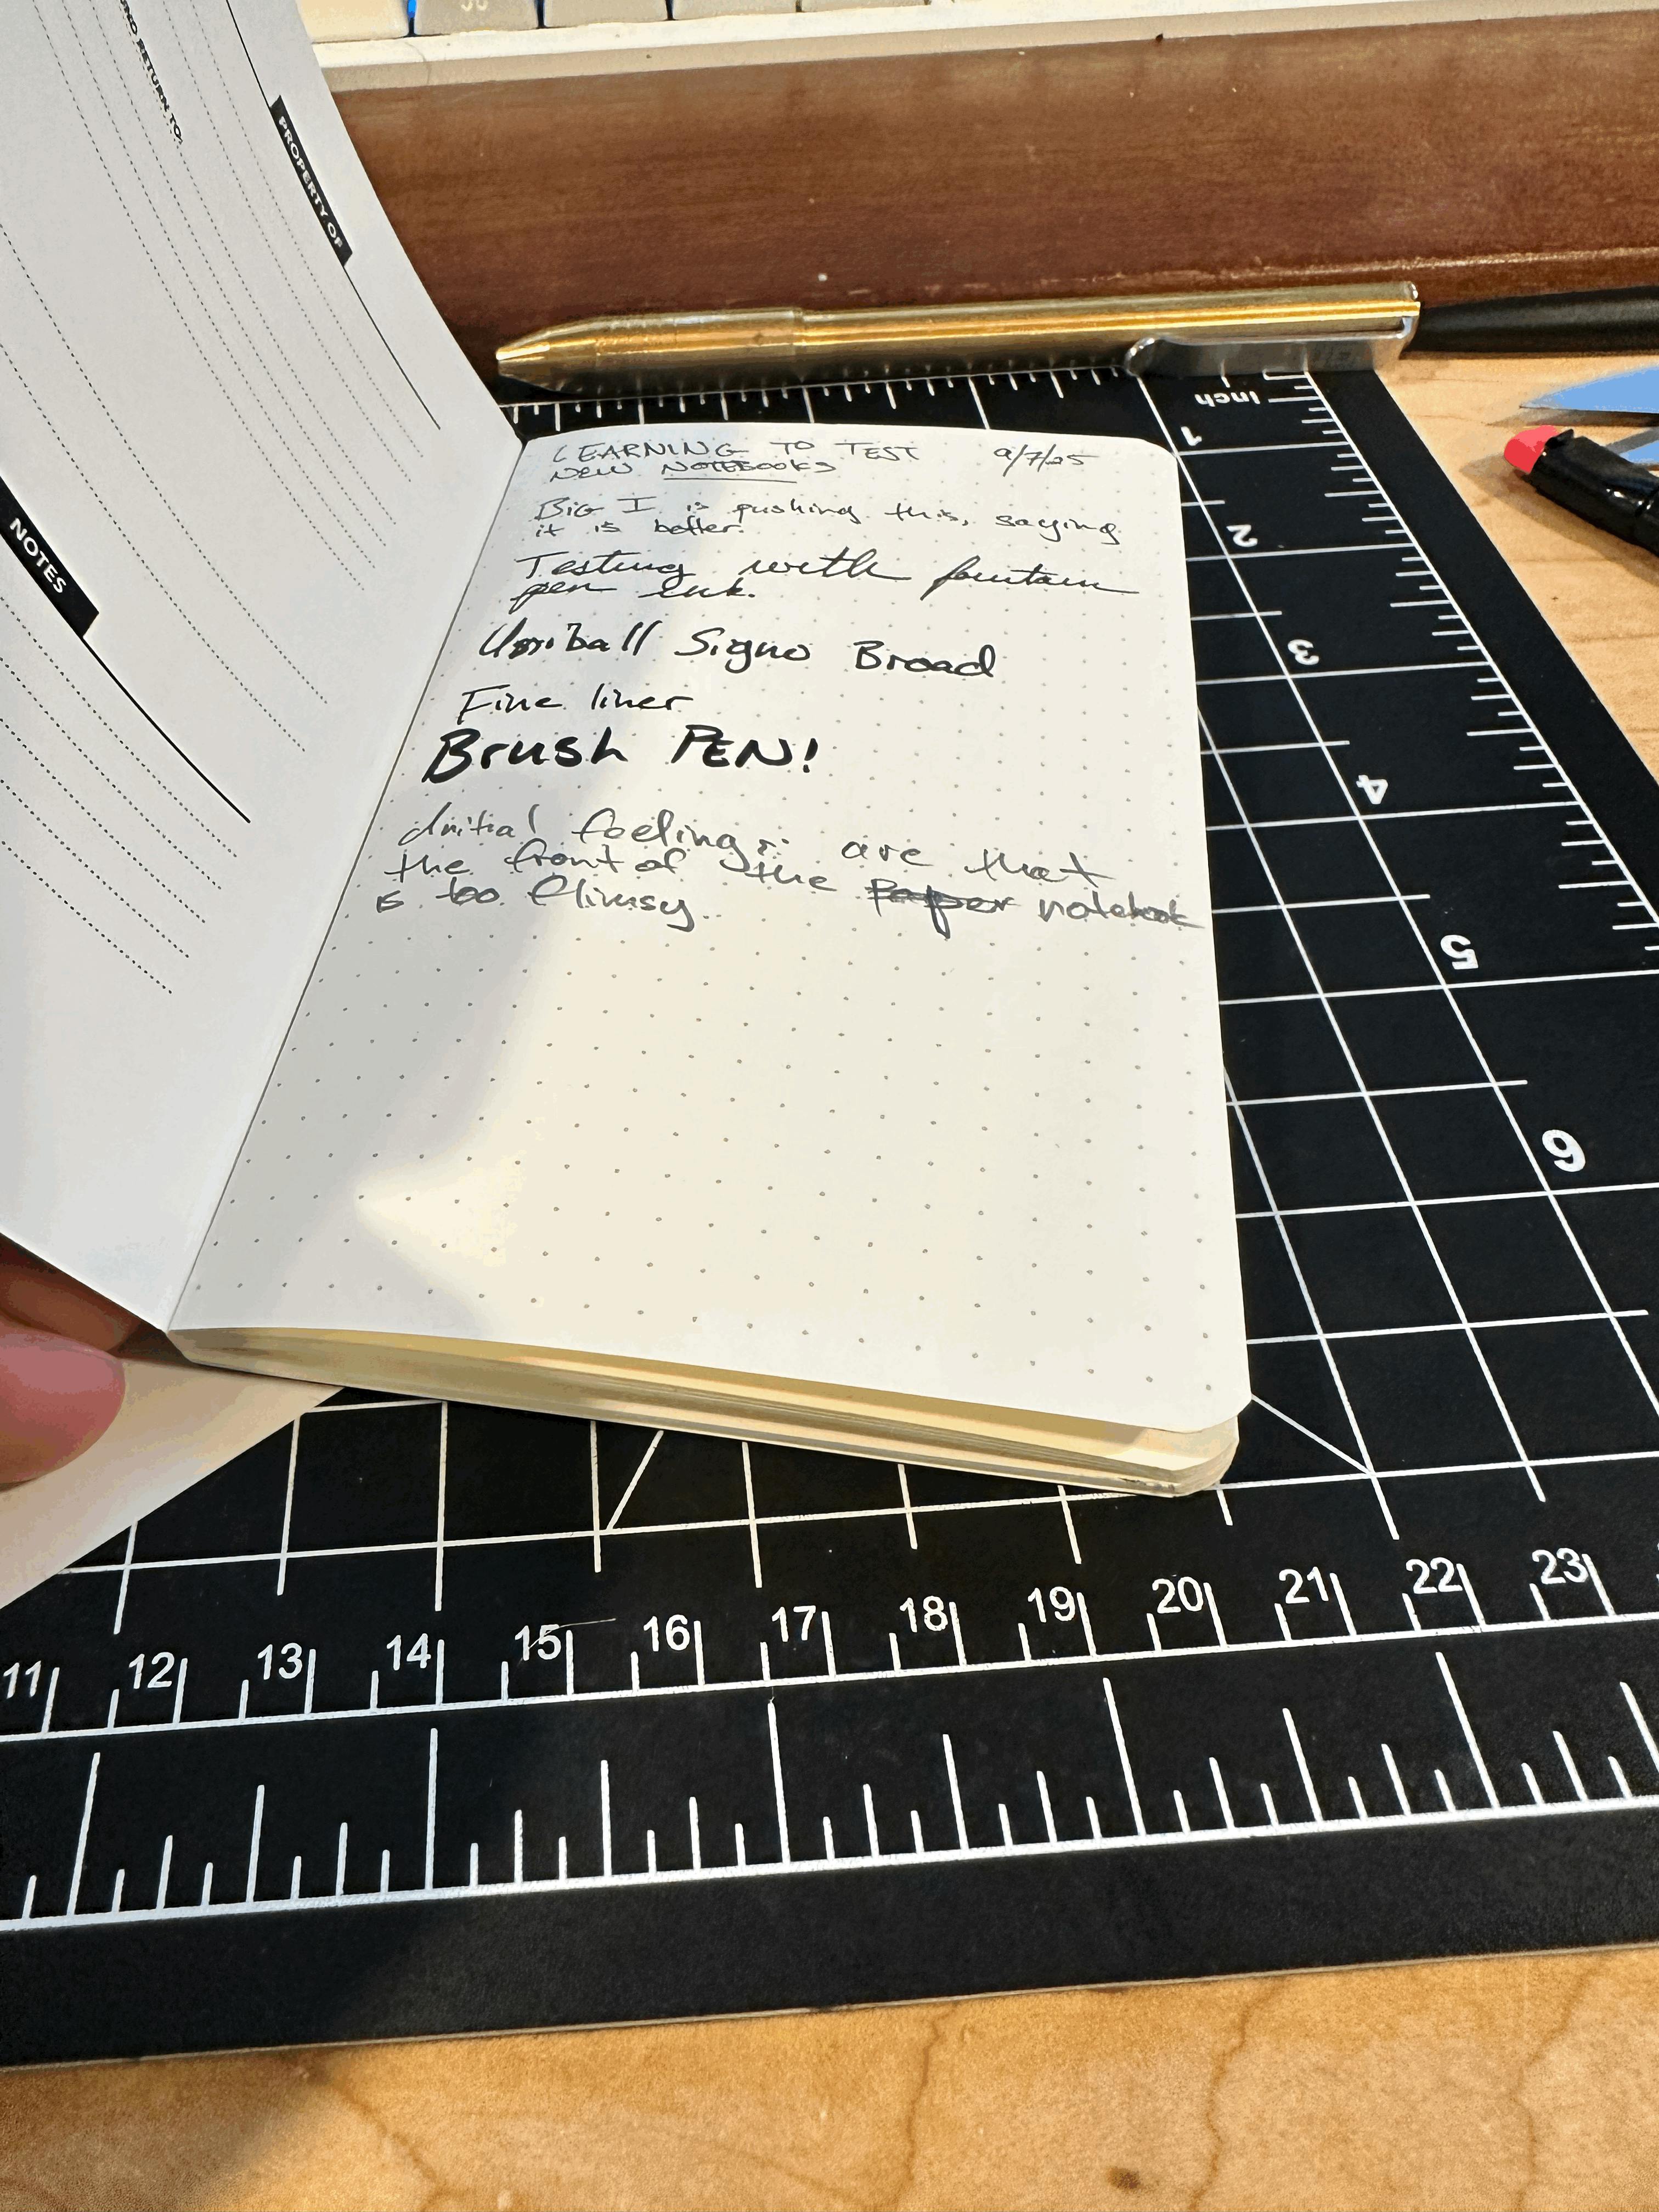 AND RETURN TO:
PROPERTY OF
NOTES
LEARNING TO TEST 9/7/25
NEW NOTEBOOKS
BIG I is pushing this, saying
it is better.
Testing with fountain
pen ink.
Uniball Signo Broad
Fine liner
Brush PEN!
Initial feelings are that
the front of the paper notebook
is too flimsy.
Inch
1
2
3
4
5
6
11 12 13 14 15 16 17 18 19 20 21 22 23